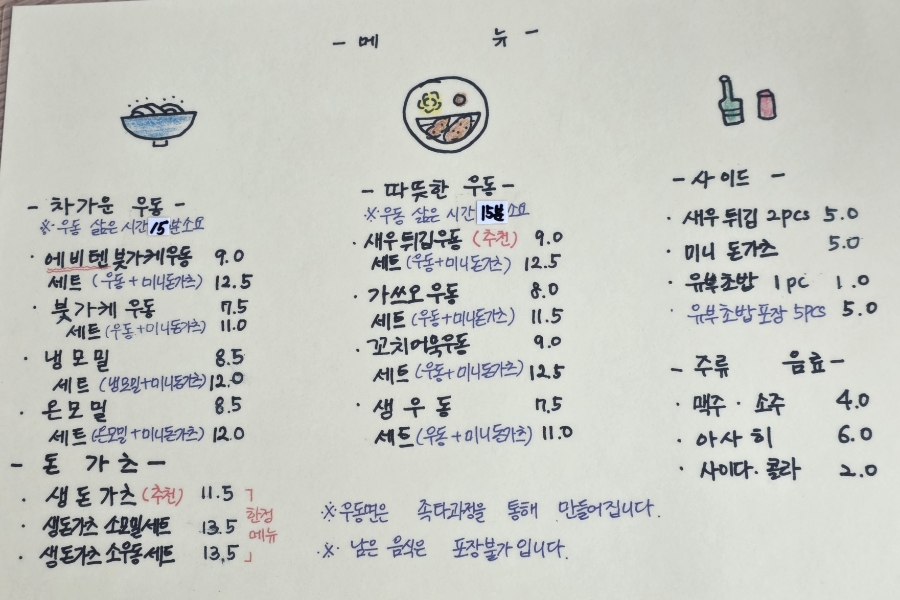 - 메 뉴 -
- 차가운 우동 -
※우동 삶은 시간 15분소요
· 에비텐붓가케우동 9.0
세트 (우동+미니돈가츠) 12.5
· 붓가케 우동 7.5
세트 (우동+미니돈가츠) 11.0
· 냉모밀 8.5
세트 (냉모밀+미니돈가츠) 12.0
· 온모밀 8.5
세트 (온모밀+미니돈가츠) 12.0
- 돈 가 츠 -
· 생돈가츠 (추천) 11.5
· 생돈가츠 소모밀세트 13.5
· 생돈가츠 소우동세트 13.5
한정
메뉴
- 따뜻한 우동 -
※우동 삶은 시간 15분소요
· 새우튀김우동 (추천) 9.0
세트 (우동+미니돈가츠) 12.5
· 가쓰오우동 8.0
세트 (우동+미니돈가츠) 11.5
· 꼬치어묵우동 9.0
세트 (우동+미니돈가츠) 12.5
· 생 우 동 7.5
세트 (우동+미니돈가츠) 11.0
- 사이드 -
· 새우튀김 2pcs 5.0
· 미니 돈가츠 5.0
· 유부초밥 1pc 1.0
· 유부초밥포장 5pcs 5.0
- 주류 음료 -
· 맥주 · 소주 4.0
· 아사히 6.0
· 사이다. 콜라 2.0
※우동면은 족타과정을 통해 만들어집니다.
※ 남은 음식은 포장불가입니다.